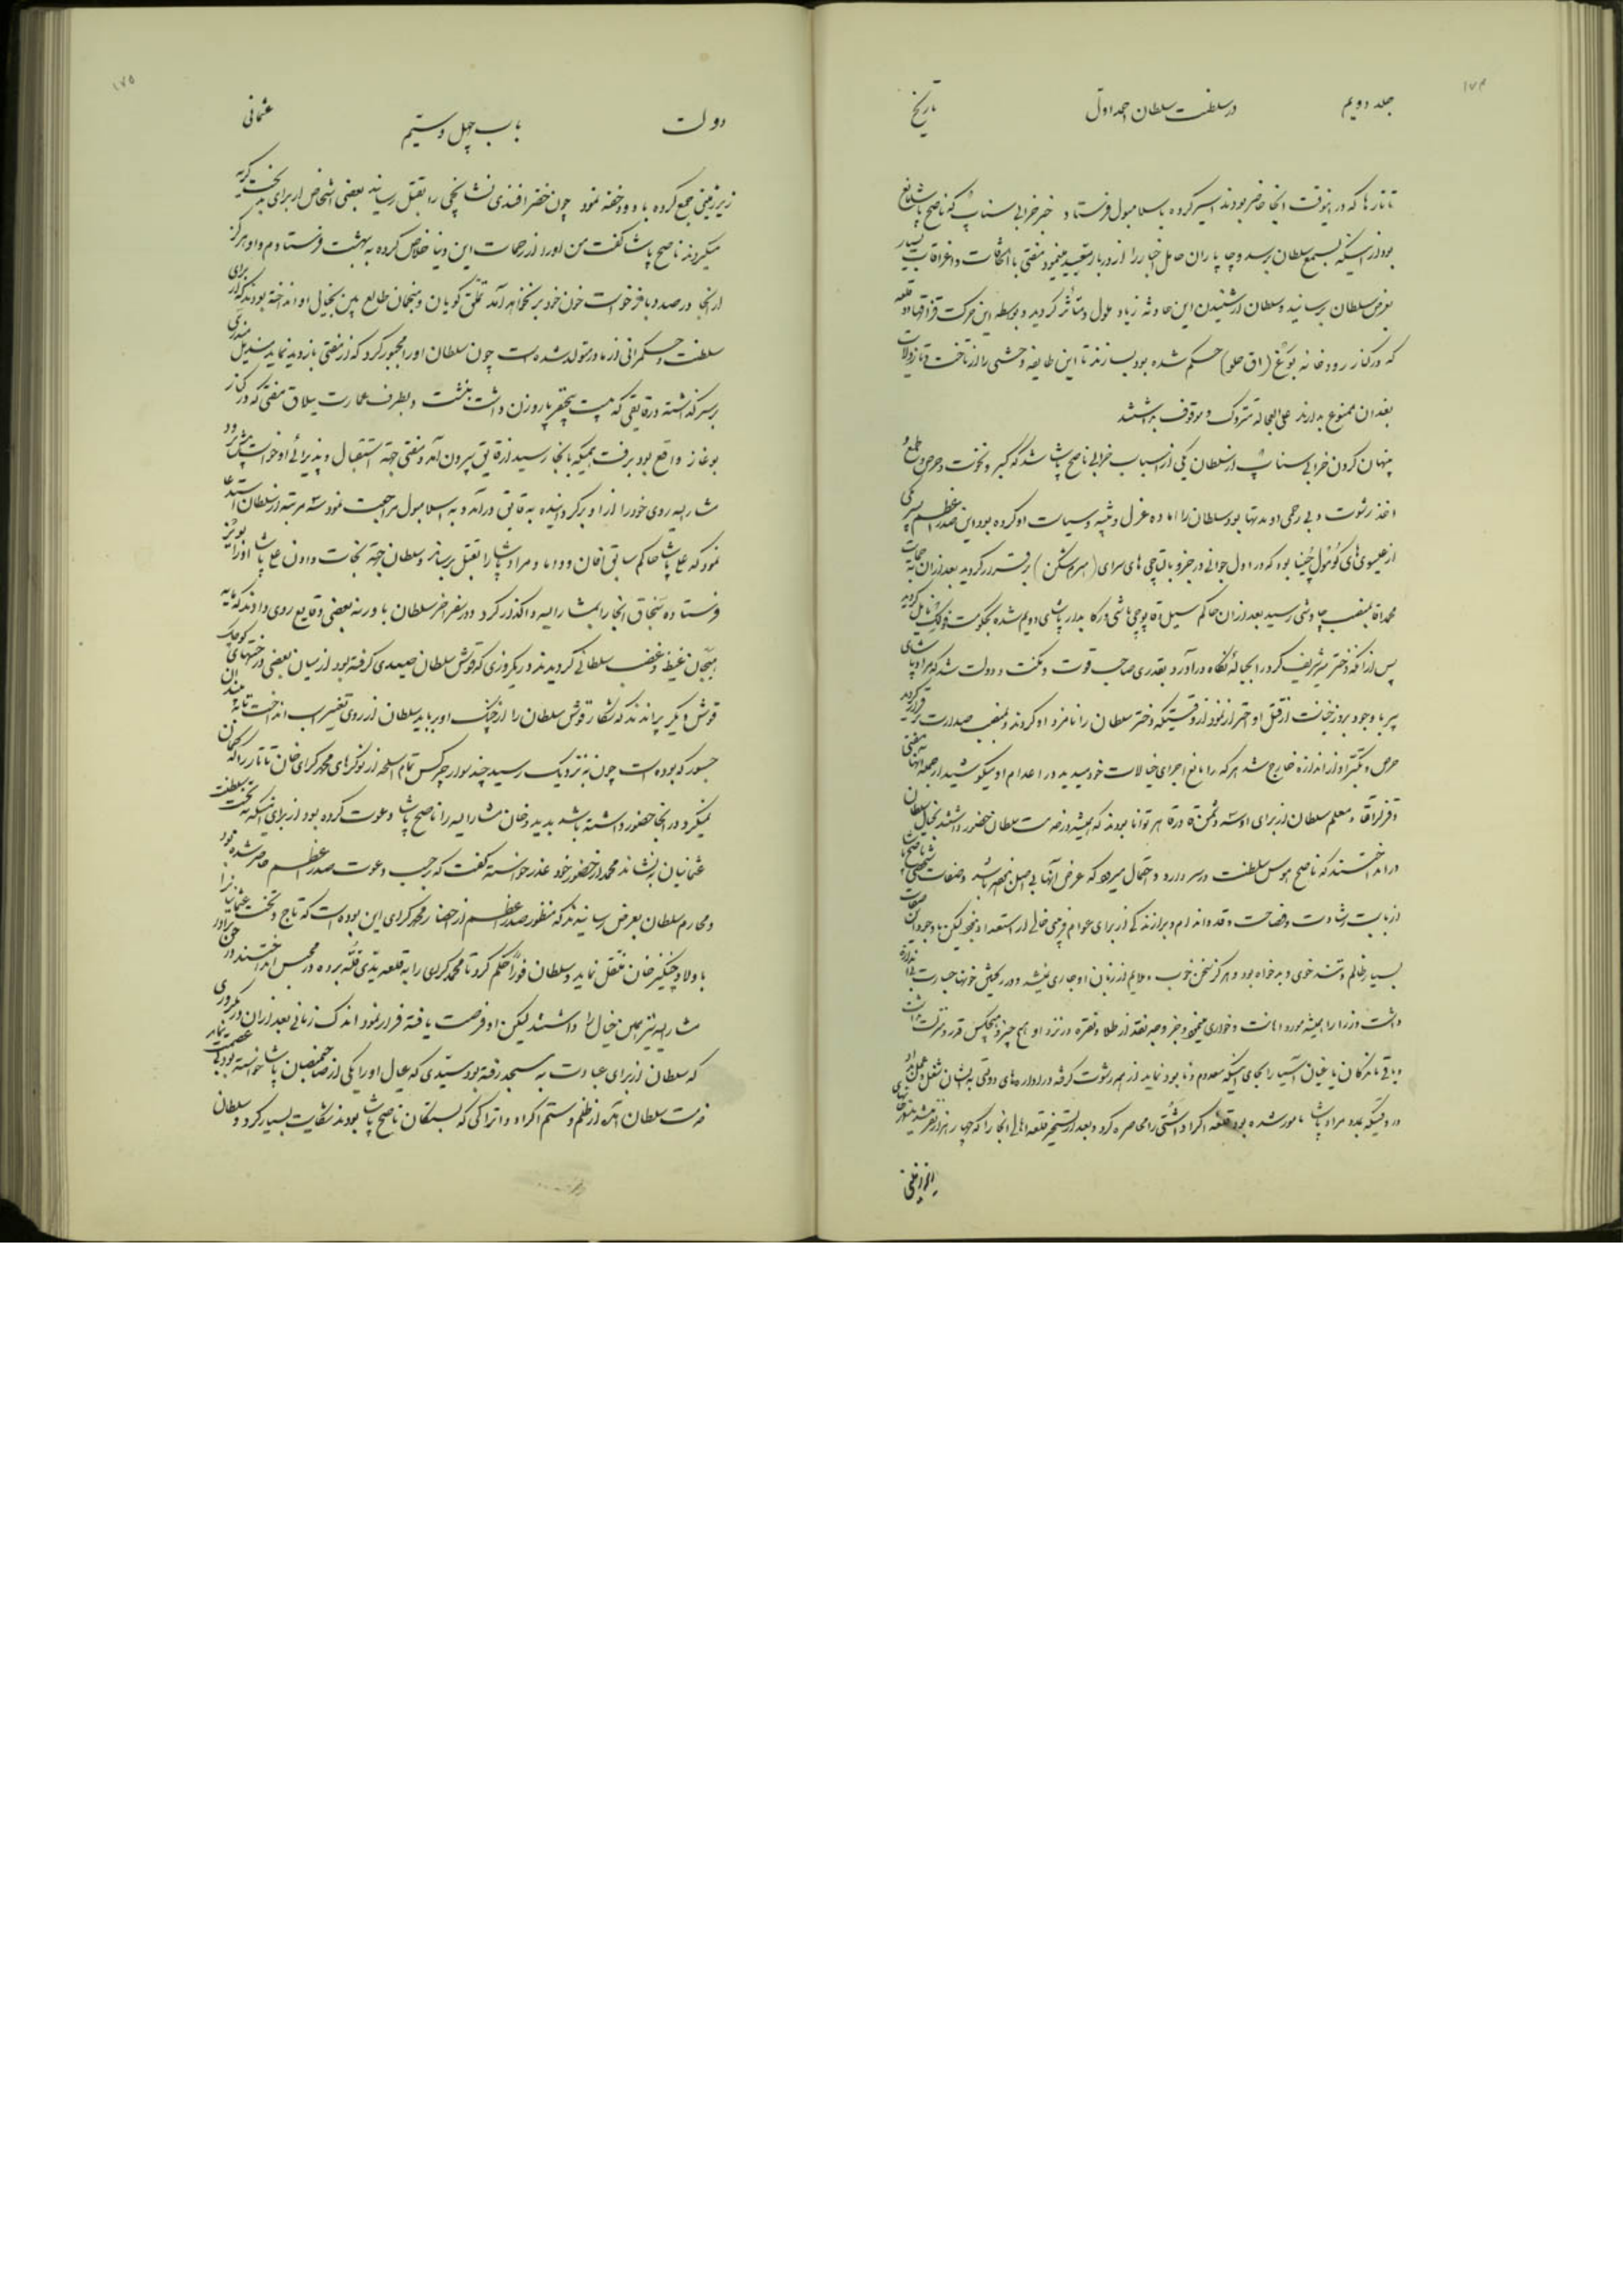 ۱۷۴
جلد دویم
در سلطنت سلطان احمد اول
تاریخ
تاتارها که در اینوقت آنجا حاضر بودند اسیر کرده باسلامبول فرستاد خبر خرابی سناپ که ناصح پاشا مانع
بود از اینکه بسمع سلطان برسد و چاپاران حامل اخبار را از دربار تبعید مینمود مفتی با اتفاقات و اغراقات بسیار
بعرض سلطان برسانید و سلطان از شنیدن این حادثه زیاد ملول و متأثر گردید و بواسطه این حرکت قزاقها دو قلعه
که در کنار رودخانه بوغ (اق صو) حکم شده بود بسازند تا این طایفه وحشی را از تاخت و تاز ولایات
بغدان ممنوع بدارند علی العجاله متروک و موقوف داشتند
پنهان کردن خرابی سناپ از سلطان یکی از اسباب خرابی ناصح پاشا شد که کبر و نخوت و حرص و طمع و
اخذ رشوت و بی رحمی او مدتها بود سلطان را آماده عزل و تنبیه و سیاست او کرده بود این صدر اعظم پسر یکی
از عیسوی های کومولچینا بود که در اول جوانی در جزو بالتاچی های سرای برقرار گردید بعد از آن بحمایت
محمد آقا بمنصب چاوشی رسید بعد از آن حاکم سیل و قاپوچی باشی و رکابدار پاشای دویم شده بحکومت نایل گردید
پس از آنکه دختر میر شریف کرد را بحباله نکاح درآورد بقدری صاحب قوت و مکنت و دولت شد که مراد پاشای
پیر با وجود بروز خیانت از قتل او احتراز نمود از وقتیکه دختر سلطان را نامزد او کردند و بمنصب صدارت برقرار گردید
حرص و تکبر او از اندازه خارج شد هر که را مانع اجرای خیالات خود میدید در اعدام او میکوشید از جمله آنها مفتی
و قزلر آقا و معلم سلطان از برای او سه دشمن قاهر توانا بودند که همیشه در خدمت سلطان حضور داشتند بخیال سلطان
در انداختند که ناصح هوس سلطنت در سر دارد و احتمال میرود که عرض آنها بی اصل نباشد و صفات شخصی ناصح پاشا
از بابت رشادت و فصاحت و قد و اندام و برازندگی از برای عوام فریبی خالی از استعداد نبود لیکن با وجود این صفات
بسیار ظالم و تند خوی و بدخواه بود و هرگز سخن خوب و ملایم از زبان او جاری نمیشد و در ریختن خونها جسارت بی اندازه
داشت وزرا را همیشه مورد اهانت و خواری مینمود و بجز وجه نقد از طلا و نقره در نزد او هیچ چیز و هیچکس قدر و منزلت نداشت
و باقی ماندگان یاغیان آسیا را بجای اینکه معدوم و نابود نماید از همه رشوت گرفته در اداره های دولتی به ایشان شغل و عمل داد
در وقتیکه بمدد مراد پاشا مامور شده بود قلعه اکراد را محاصره کرد و بعد از تسخیر قلعه اهالی آنجا را که چهار هزار نفر میشدند
۱۷۵
دولت
باب چهل و سیم
عثمانی
زیر زمینی جمع کرده با دود خفه نمود چون خضر افندی نشانچی را بقتل رسانید بعضی اشخاص از برای گریه
میکردند ناصح پاشا گفت من او را از زحمات این دنیا خلاص کرده به بهشت فرستادم و او هرگز
از آنجا در صدد بازخواست خون خود بر نخواهد آمد تملق گویان و منجمان طالع بین بخیال او انداخته بودند که از برای
سلطنت و حکمرانی از مادر متولد شده است چون سلطان او را مجبور کرد که از مفتی بازدید نماید مندیل
بر سر گذاشته در قایقی که بیست و پنج نفر پاروزن داشت بنشست و بطرف عمارت ییلاق مفتی که در کنار
بوغاز واقع بود برفت همینکه بانجا رسید از قایق بیرون آمد و مفتی جهة استقبال و پذیرائی او خواست پیش رود
مشارالیه روی خود را از او برگردانیده به قایق درآمد و به اسلامبول مراجعت نمود سه مرتبه از سلطان استدعا
نمود که علی پاشا حاکم سابق و داماد مراد پاشا را بقتل برساند و سلطان جهة نجات دادن علی پاشا او را
فرستاده سنجاق آنجا را بمشارالیه واگذار کرد و در سفر آخر سلطان با ادرنه بعضی وقایع روی دادند که مایه
هیجان غیظ و غضب سلطانی گردیدند در یکروزی که قوش سلطان صیدی گرفته بود از میان بعضی درختهای کوچک
قوش دیگر پراندند که شکار قوش سلطان را از چنگ او برباید سلطان از روی تغیر اسب انداخت تا
جسور که بوده است چون به نزدیک رسید چند سوار چرکس تمام اسلحه از نوکرهای محمد گرای خان تاتار را که گمان
نمیکرد در آنجا حضور داشته باشد بدید و خان مشارالیه را ناصح پاشا دعوت کرده بود از برای اینکه به تخت سلطنت
عثمانیان بنشاند محمد از حضور خود عذر خواسته گفت که بر حسب دعوت صدر اعظم حاضر شده بود
و محارم سلطان بعرض رسانیدند که منظور صدر اعظم از احضار محمد گرای این بوده است که تاج و تخت عثمانیان را
باولاد چنگیز خان منتقل نماید و سلطان فوراً حکم کرد تا محمد گرای را به قلعه یدی قله برده در محبس انداختند
مشارالیه نیز همین خیال را داشتند لیکن او فرصت یافته فرار نمود اندک زمانی بعد از آن در یکروزی
که سلطان از برای عبادت به مسجد رفته بود سیدی که عیال او را یکی از صاحبمنصبان پاشا خواسته بود بی عصمت نماید
خدمت سلطان آمده از ظلم و ستم اکراد و اتراکی که بستگان ناصح پاشا بودند شکایت بسیار کرد و سلطان